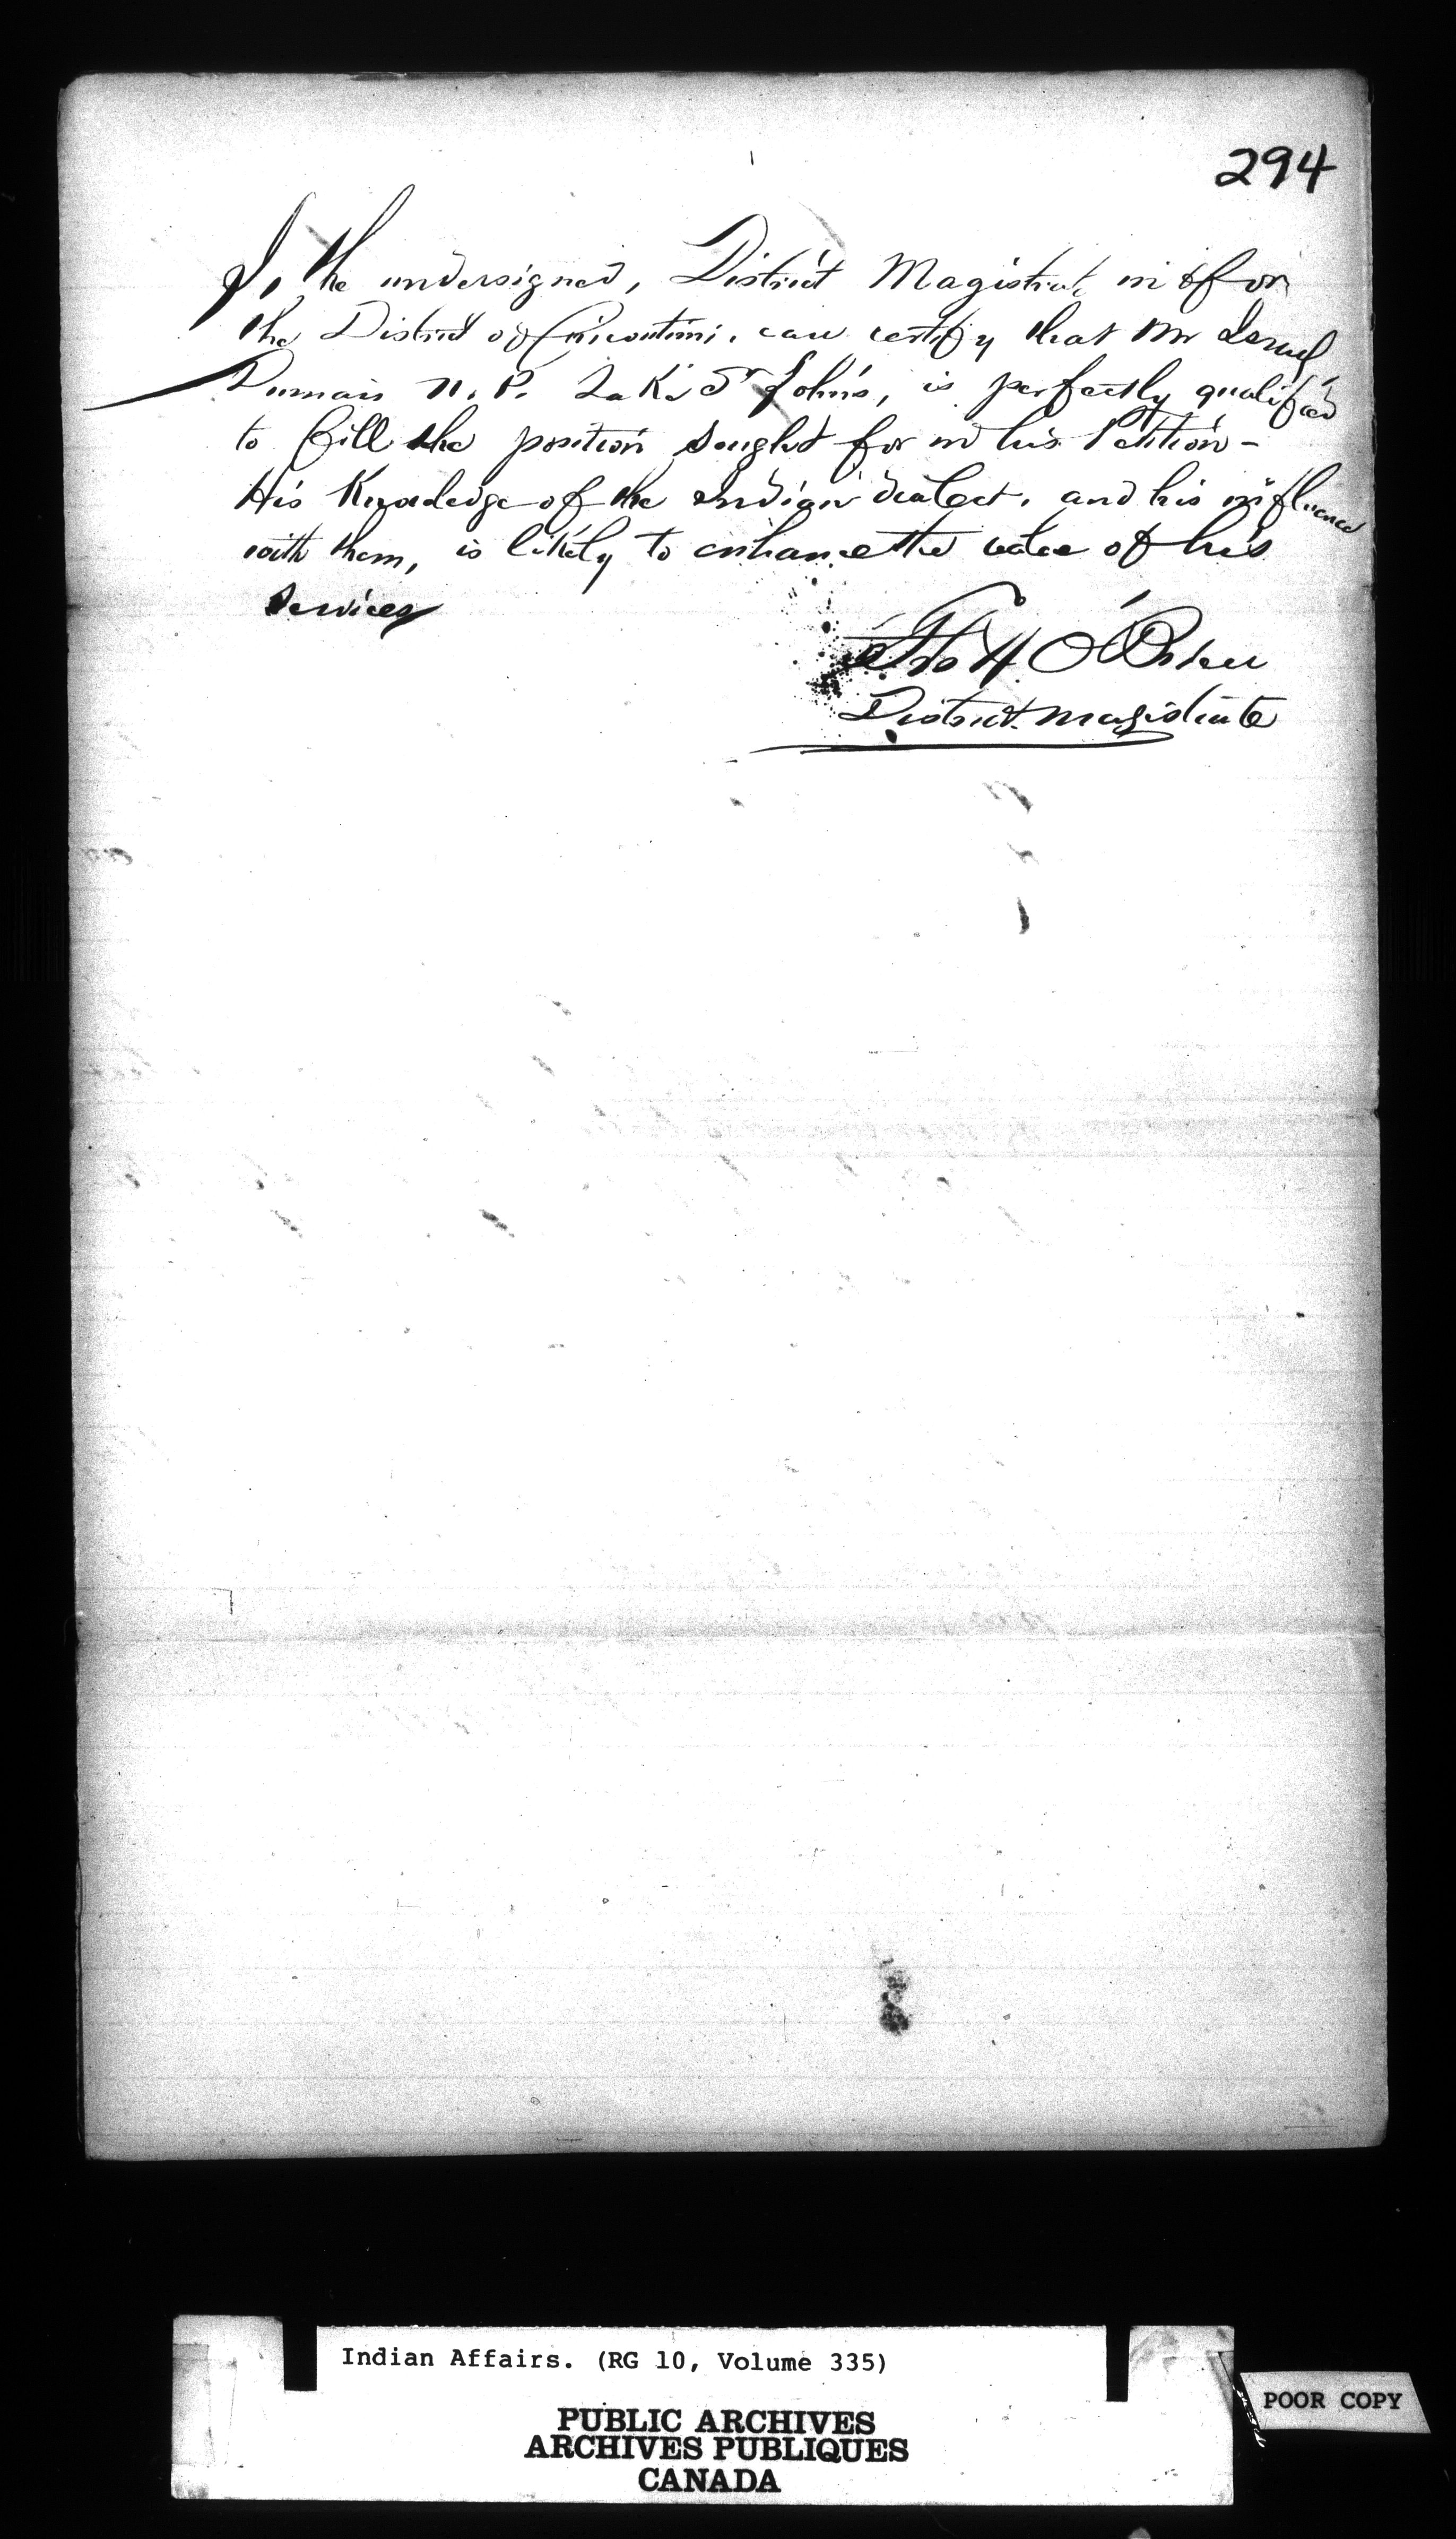 294
I, the undersigned, District Magistrate in & for
the District of Chicoutimi, can certify that Mr Israel
Dumais N. P. Lake St John's, is perfectly qualified
to fill the position sought for in his Petition -
His Knowledge of the Indian dialect, and his influence
with them, is likely to enhance the value of his
Services
H. O'Brien
District Magistrate
Indian Affairs. (RG 10, Volume 335)
PUBLIC ARCHIVES
ARCHIVES PUBLIQUES
CANADA
POOR COPY